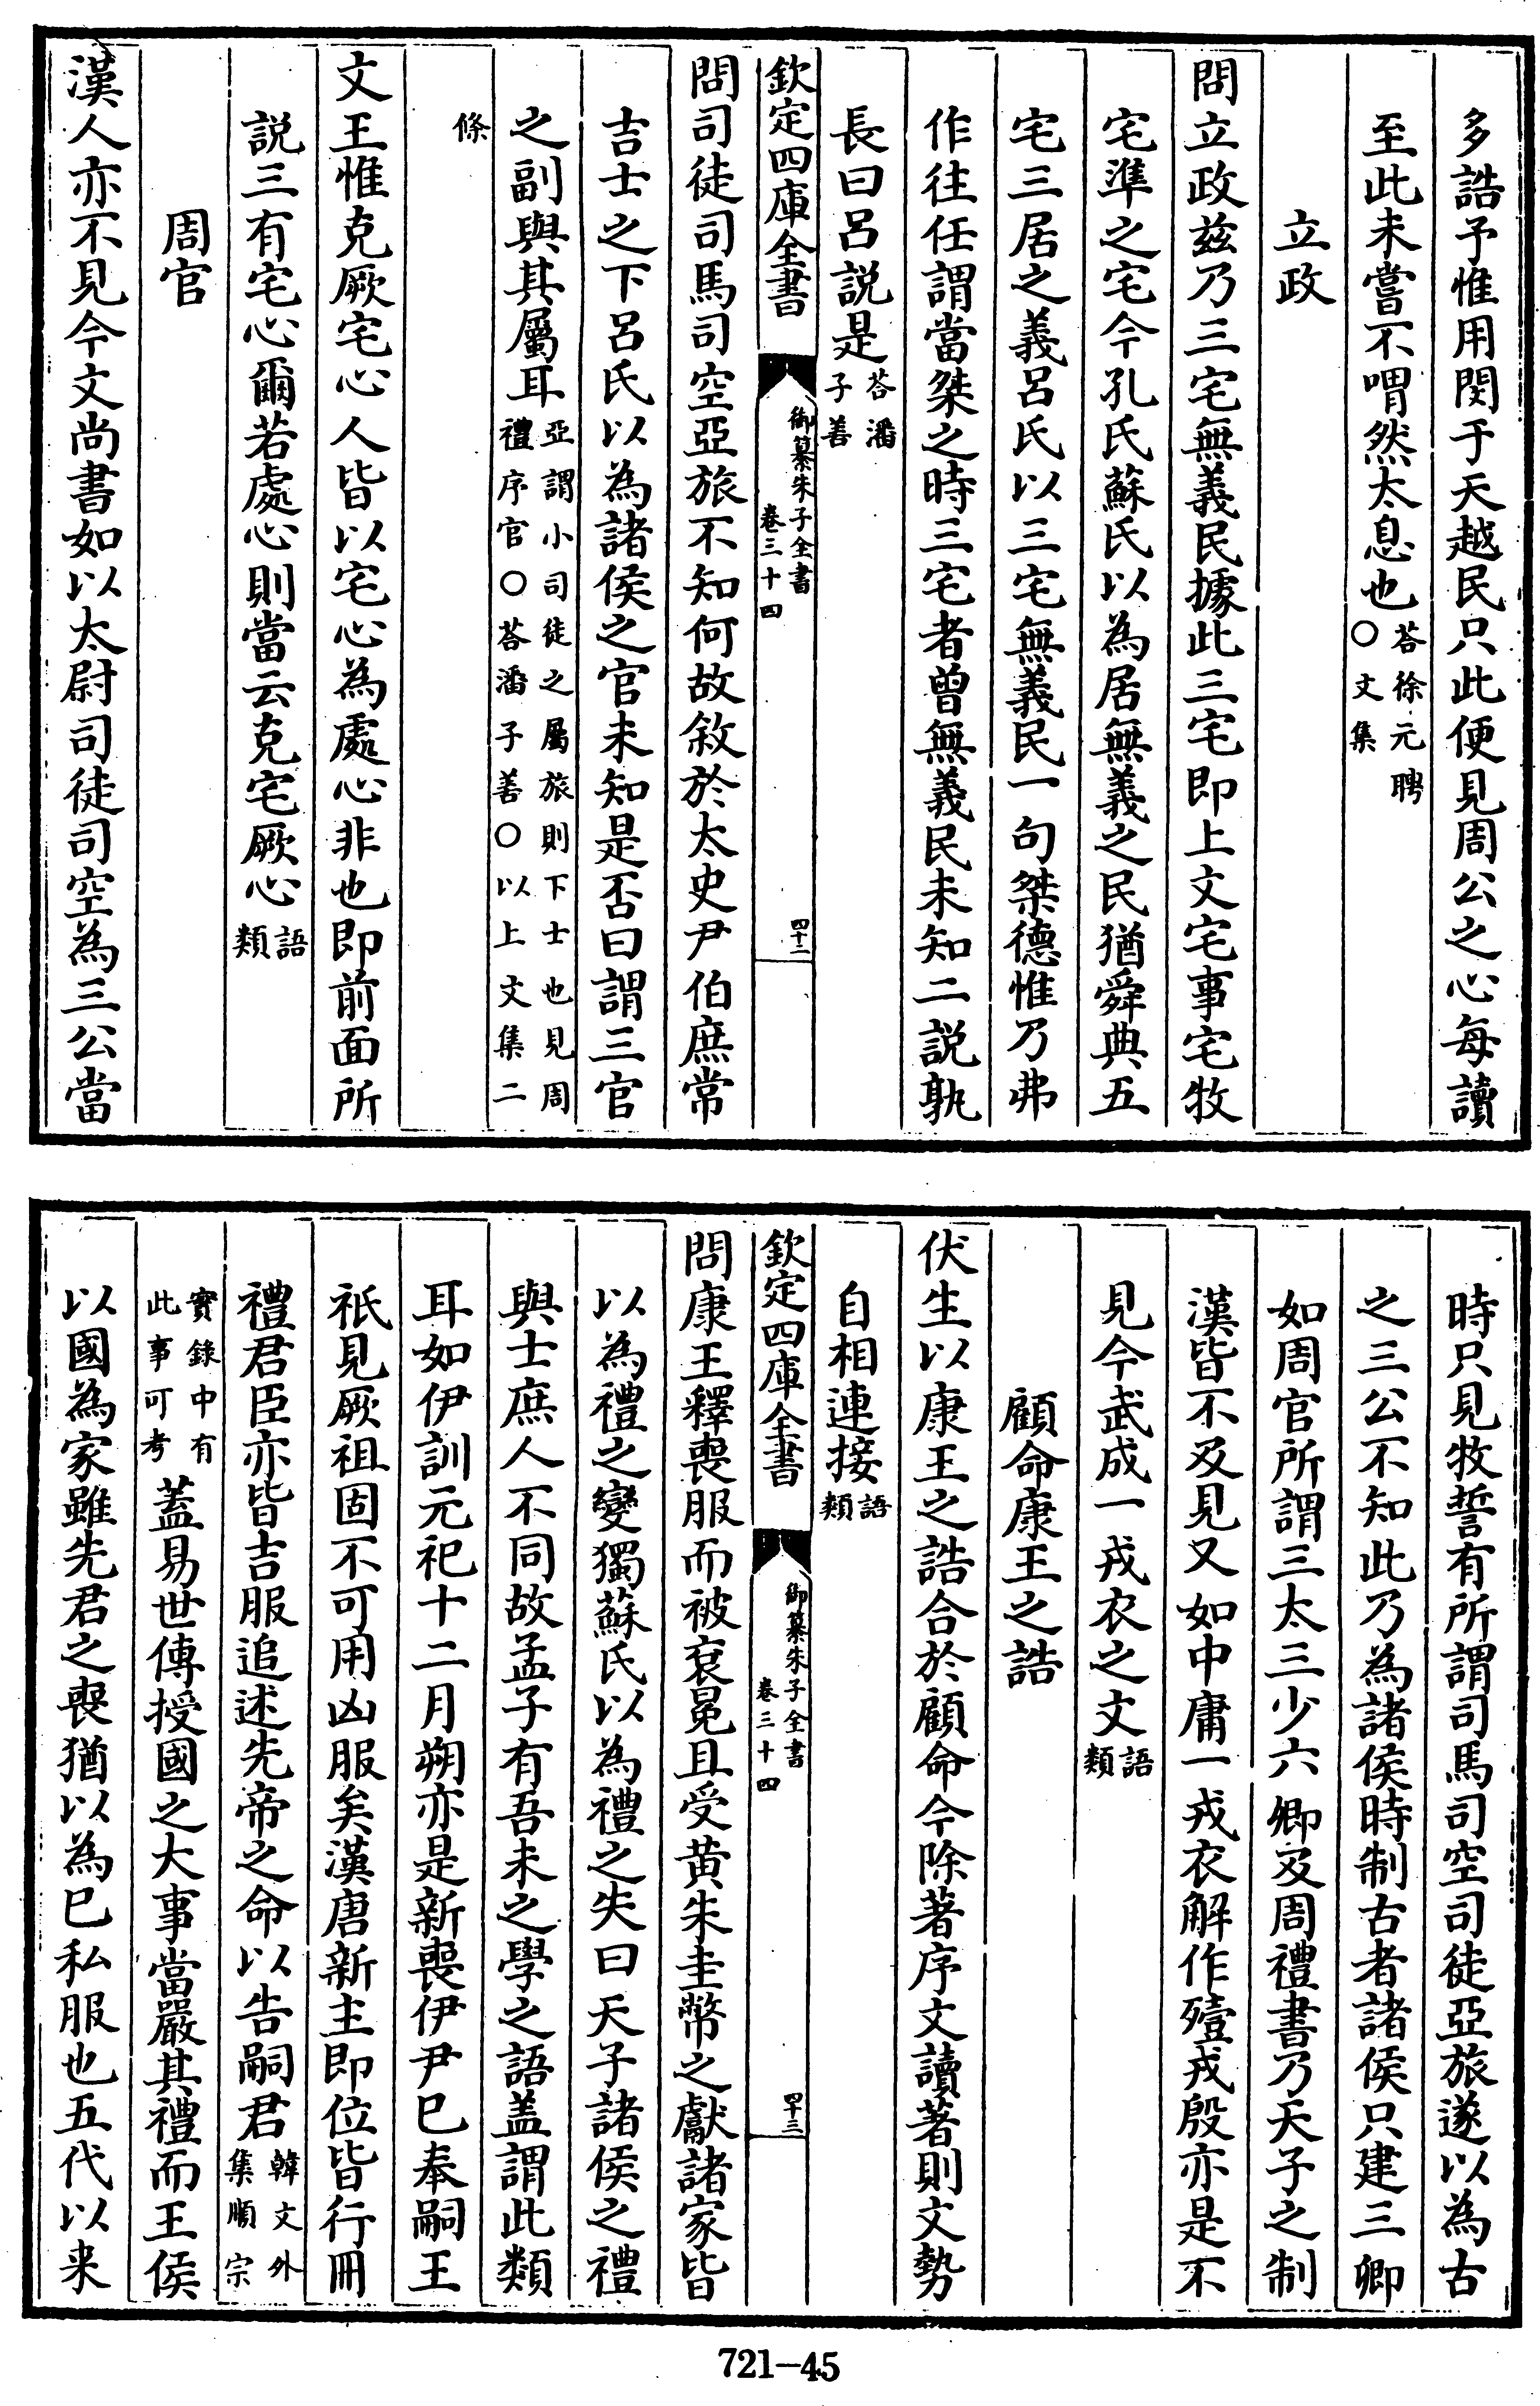 多誥予惟用閔于天越民只此便見周公之心每讀
至此未嘗不喟然太息也答徐元聘○文集
立政
問立政兹乃三宅無義民據此三宅即上文宅事宅牧
宅準之宅今孔氏蘇氏以為居無義之民猶舜典五
宅三居之義呂氏以三宅無義民一句桀德惟乃弗
作往任謂當桀之時三宅者曾無義民未知二説孰
長曰呂説是答潘子善
欽定四庫全書
御纂朱子全書
卷三十四
四十二
問司徒司馬司空亞旅不知何故敘於太史尹伯庶常
吉士之下呂氏以為諸侯之官未知是否曰謂三官
之副與其屬耳亞謂小司徒之屬旅則下士也見周禮序官○答潘子善○以上文集二
條
文王惟克厥宅心人皆以宅心為處心非也即前面所
説三有宅心爾若處心則當云克宅厥心語類
周官
漢人亦不見今文尚書如以太尉司徒司空為三公當
時只見牧誓有所謂司馬司空司徒亞旅遂以為古
之三公不知此乃為諸侯時制古者諸侯只建三卿
如周官所謂三太三少六卿及周禮書乃天子之制
漢皆不及見又如中庸一戎衣解作殪戎殷亦是不
見今武成一戎衣之文語類
顧命康王之誥
伏生以康王之誥合於顧命今除著序文讀著則文勢
自相連接語類
欽定四庫全書
御纂朱子全書
卷三十四
四十三
問康王釋喪服而被衮冕且受黄朱圭幣之獻諸家皆
以為禮之變獨蘇氏以為禮之失曰天子諸侯之禮
與士庶人不同故孟子有吾未之學之語盖謂此類
耳如伊訓元祀十二月朔亦是新喪伊尹已奉嗣王
祇見厥祖固不可用凶服矣漢唐新主即位皆行冊
禮君臣亦皆吉服追述先帝之命以告嗣君韓文外集順宗
實錄中有此事可考蓋易世傳授國之大事當嚴其禮而王侯
以國為家雖先君之喪猶以為已私服也五代以来
721-45